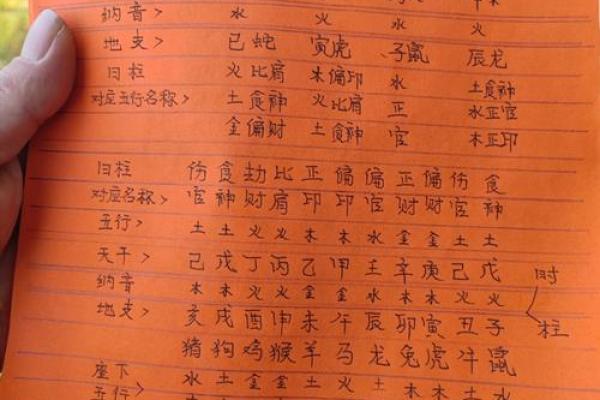 纳音> 水 火 水 火
地支> 巳蛇 寅虎 子鼠 辰龙
日柱 火比肩 木偏印 水 土食神
对应五行名称> 土食神 火比肩 正 水正官
金偏财 土食神 官 木正印
日柱 伤食劫比正偏偏正偏伤食
对座名称> 官神财肩印印官财财官神
五行> 土土火火木木水金金土土
天干> 己戊丁丙乙甲壬辛庚己戊 时
纳音 木木火火金金水木木火火
地支> 亥戌酉申未午辰卯寅丑子 柱
猪狗鸡猴羊马龙兔虎牛鼠
座下 水土金金土火土木木土水
五行>